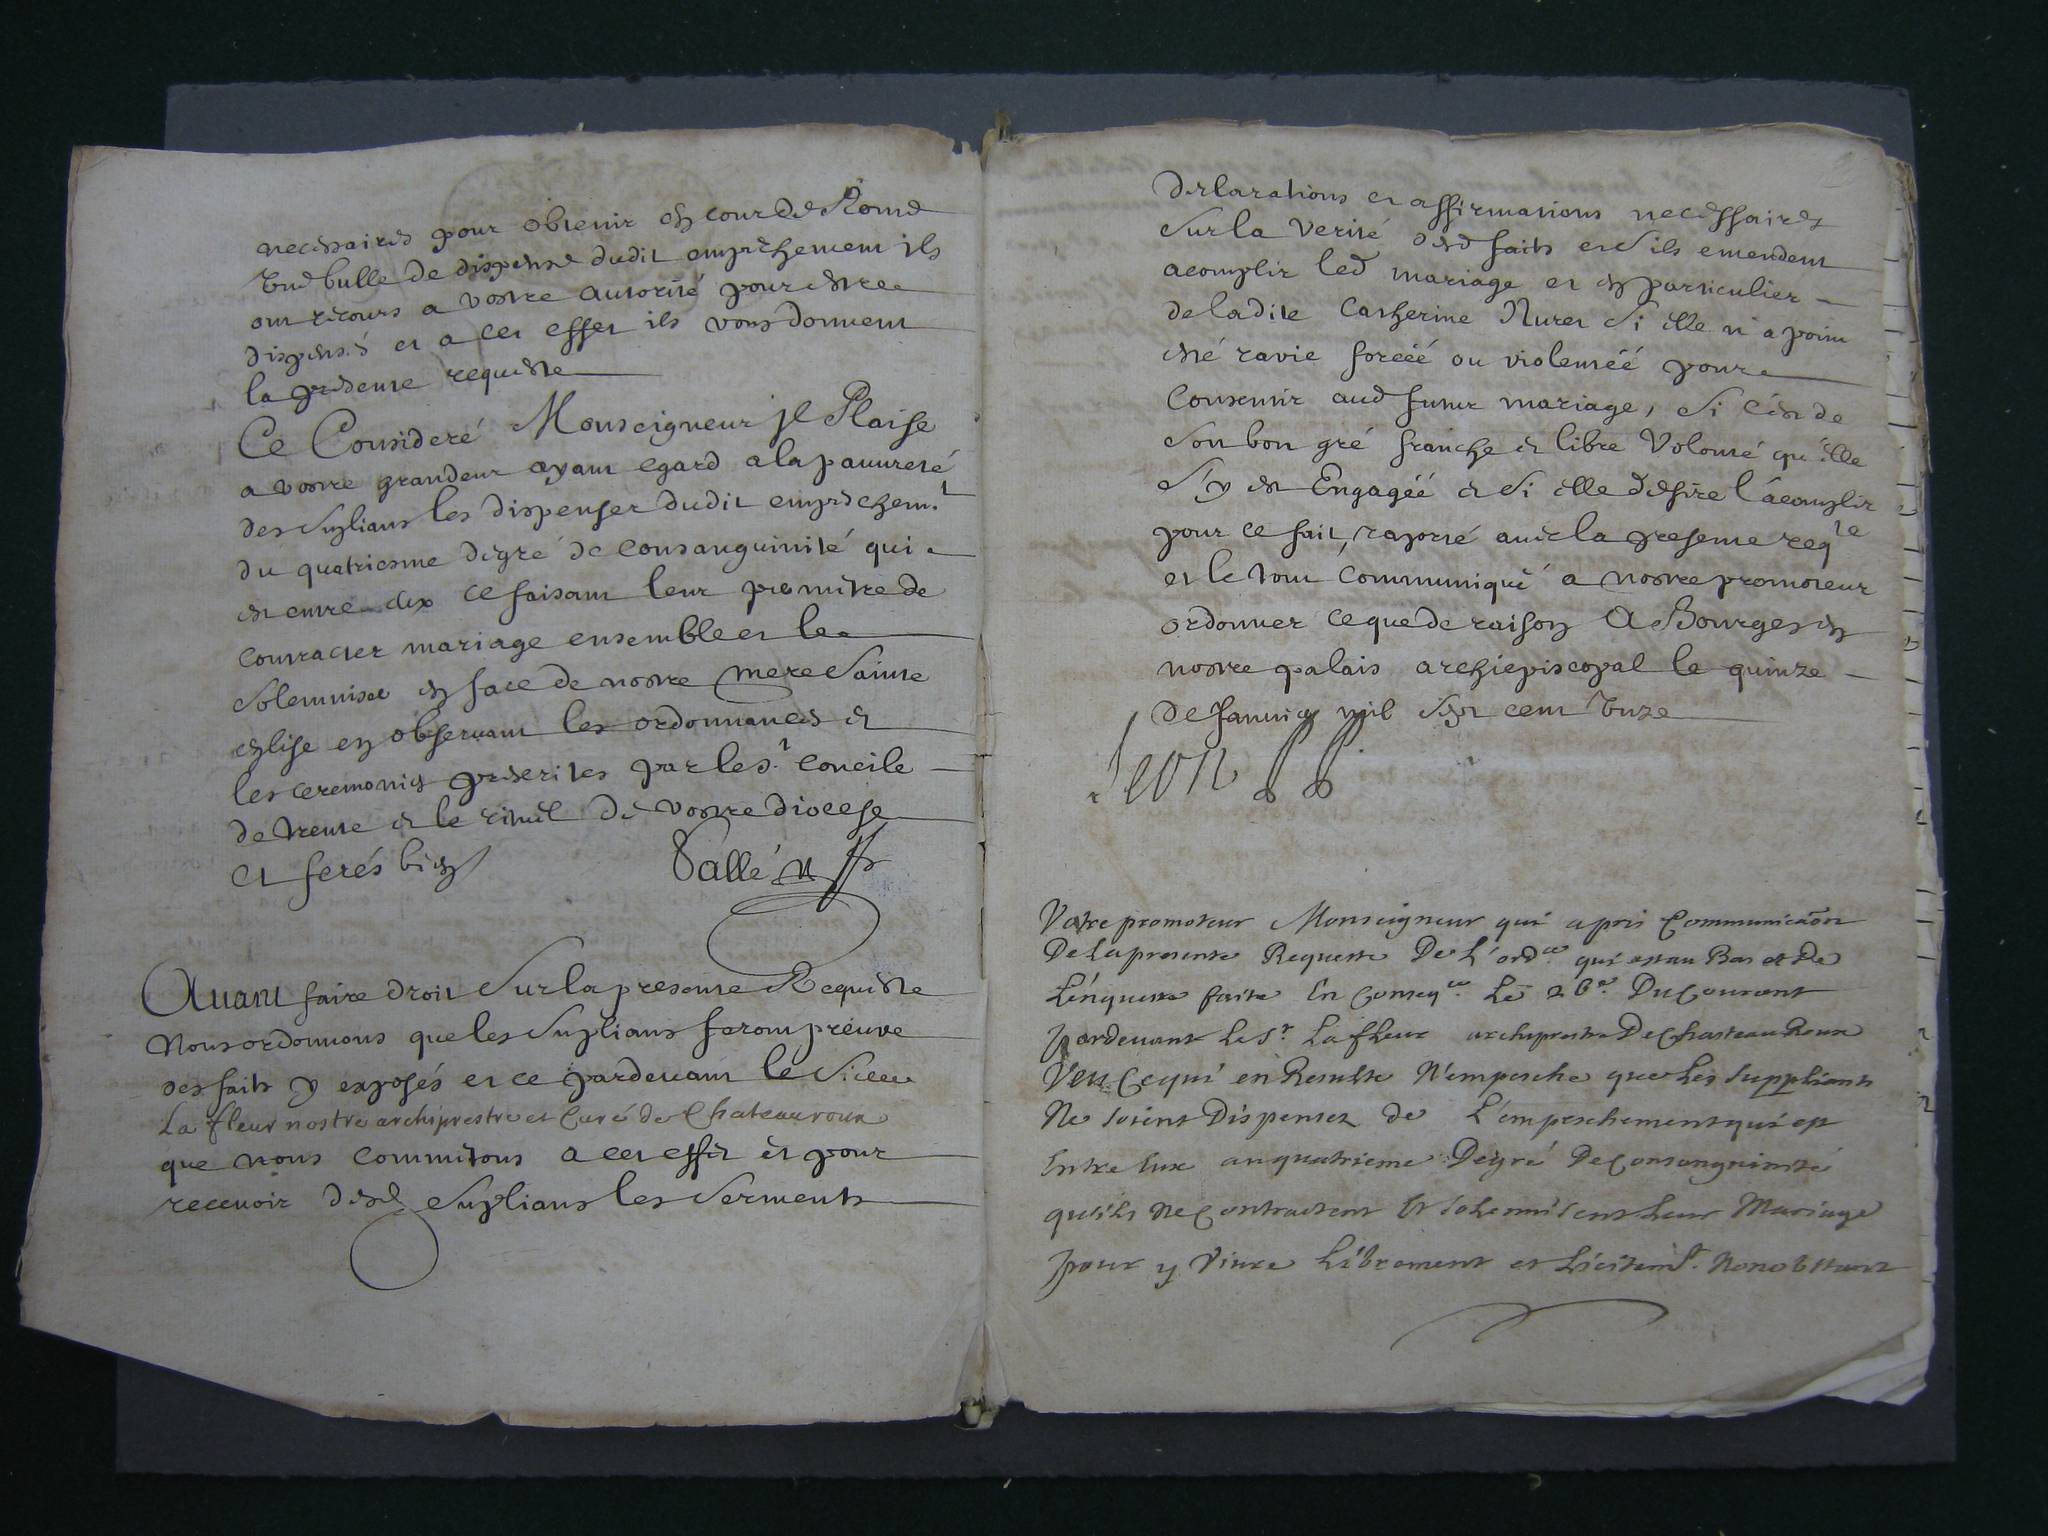 necessaires pour obtenir en cour de Rome
une bulle de dispense dudit empeschement ils
ont recours a vostre autorité pour estre
dispensés et a cet effet ils vous donnent
la presente requeste
Ce Consideré Monseigneur jl Plaise
a vostre grandeur ayant egard a la pauvreté
des suplians les dispenser dudit empeschemt
du quatriesme degré de consanguinité qui
est entre eux ce faisant leur permettre de
contracter mariage ensemble et le
solemniser en face de nostre mere sainte
eglise en observant les ordonnances et
les ceremonies prescrites par le st concile
de trente et le rituel de vostre diocese
et ferés bien Vallé
Avant faire droit sur la presente Requeste
Nous ordonnons que les suplians feront preuve
des faits y exposés et ce pardevant le sieur
La fleur nostre archiprestre et Curé de Chateauroux
que nous commettons a cet effet et pour
recevoir desd suplians les serments
declarations et affirmations necessaires
sur la verité desd faits et sils entendent
acomplir led mariage et en particulier
de ladite Catherine Nuret si elle n'a point
esté ravie forcéé ou violentéé pour
consentir aud futur mariage, si c'est de
son bon gré franche et libre volonté qu'elle
s'y est Engagéé et si elle desire l'acomplir
pour ce fait, raporté avec la presente reqte
et le tout communiqué a nostre promoteur
ordonner ce que de raison A Bourges en
nostre palais archiepiscopal le quinze
de Janvier mil sept cent unze
Leon
Vostre promoteur Monseigneur qui apres Communicaon
De la presente Requeste De L'ordce qui est au Bas et De
L'enqueste faite En Conseqce Le 26e Du Courant
pardevant le Sr Lafleur archiprestre De Chasteau Roux
Veu Ce qui en Resulte N'empesche que les suppliants
Ne soient Dispensez de L'empeschement qui est
Entre Eux au quatrieme Degré De Consanguinité
qu'ils ne Contractent Et solemnisent leur Mariage
pour y Vivre Librement et Licitemt. Nonobstant